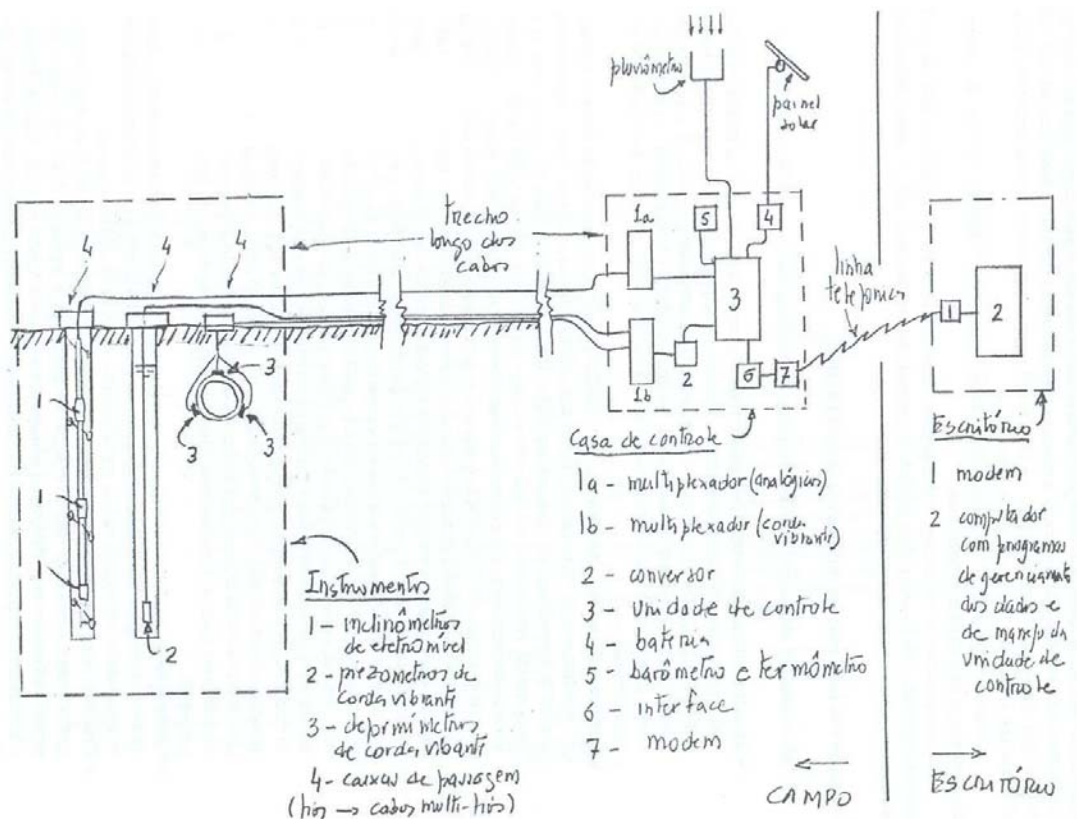 pluviômetro
painel
solar
trecho
longo dos
cabos
1a
5
4
4
4
4
3
linha
telefônica
1
2
1b
2
6
7
3
3
3
1
1
1
2
Instrumentos
1 - inclinômetros
de eletronível
2 - piezometros de
corda vibrante
3 - deformímetros
de corda vibante
4 - caixas de passagem
(fios → cabos multi-fios)
Casa de controle
1a - multiplexador (analógico)
1b - multiplexador (corda
vibrante)
2 - conversor
3 - unidade de controle
4 - bateria
5 - barômetro e termômetro
6 - interface
7 - modem
CAMPO
Escritório
1 modem
2 computador
com programas
de gerenciamento
dos dados e
de manejo da
unidade de
controle
ESCRITÓRIO